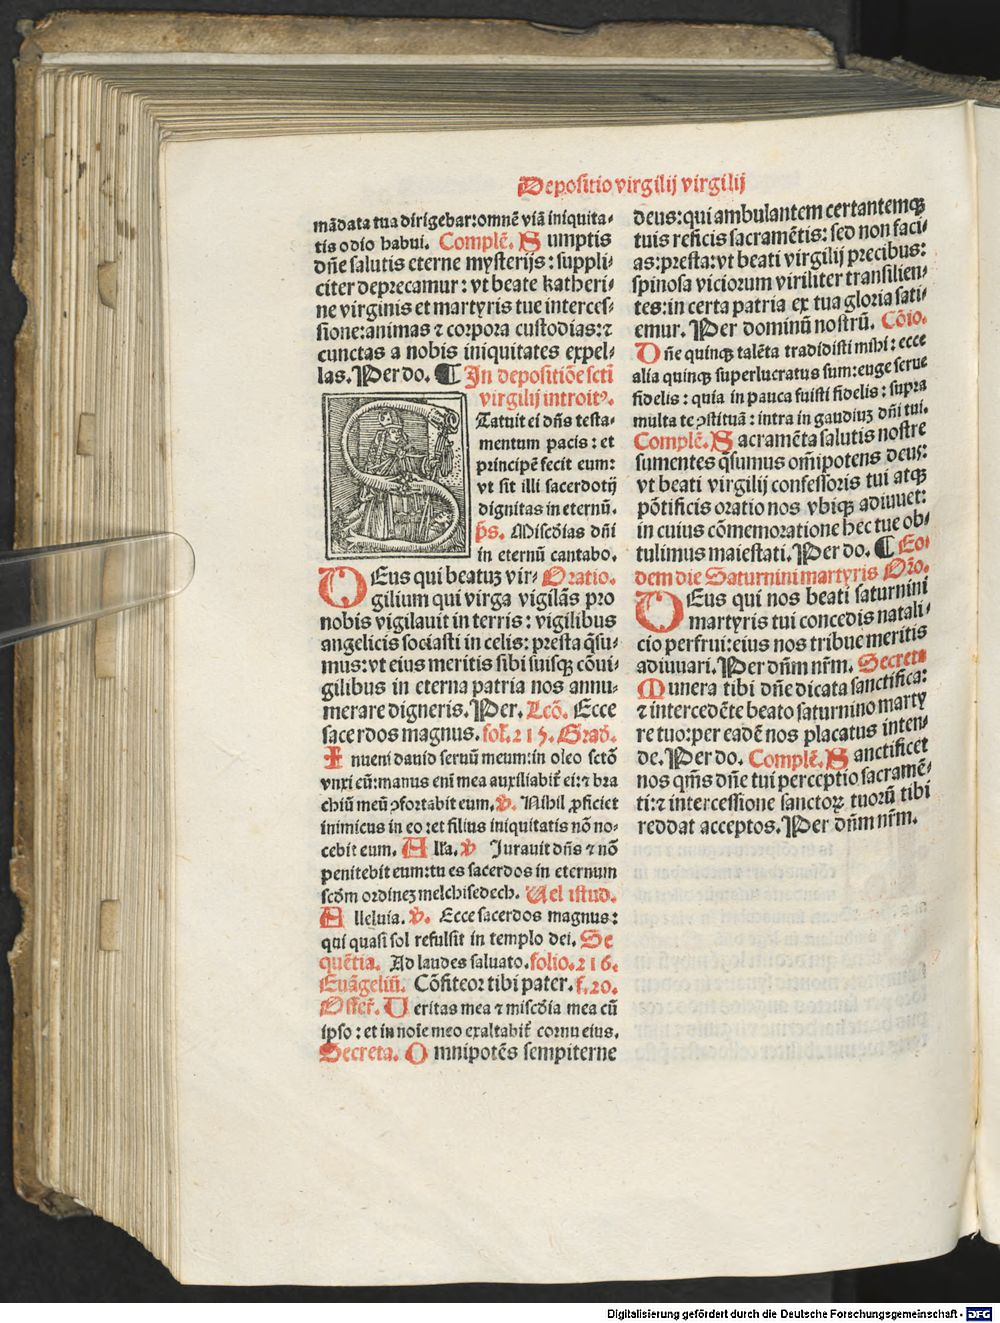 Depositio virgilij virgilij
mãdata tua dirigebar:omnẽ viã iniquita⸗
tis odio habui. Complẽ. Sumptis
dñe salutis eterne mysterijs: suppli⸗
citer deprecamur: vt beate katheri⸗
ne virginis et martyris tue interces⸗
sione:animas ⁊ corpora custodias:⁊
cunctas a nobis iniquitates expel⸗
las. Per do. ¶ In depositiõe scti
virgilij introitꝰ.
STatuit ei dñs testa⸗
mentum pacis: et
principẽ fecit eum:
vt sit illi sacerdotij
dignitas in eternũ.
p̃s. Misc̃dias dñi
in eternũ cantabo.
DEus qui beatuȝ vir⸗ Oratio.
gilium qui virga vigilãs pro
nobis vigilauit in terris: vigilibus
angelicis sociasti in celis: presta q̃su⸗
mus: vt eius meritis sibi suisqꝫ cõui⸗
gilibus in eterna patria nos annu⸗
merare digneris. Per. Lcõ. Ecce
sacerdos magnus. fol. 215. Grad̃.
Inueni dauid seruũ meum: in oleo sctõ
vnxi eũ: manus eni mea auxiliabit̃ ei: ⁊ bra
chiũ meũ ꝯfortabit eum. ℣. Nihil ꝓficiet
inimicus in eo: et filius iniquitatis nõ no⸗
cebit eum. Alła. ℣ Jurauit dñs ⁊ nõ
penitebit eum: tu es sacerdos in eternum
scdm̃ ordineȝ melchisedech. Uel istud.
Alleluia. ℣. Ecce sacerdos magnus:
qui quasi sol refulsit in templo dei. Se
quẽtia. Ad laudes saluato. folio. 216.
Euãgeliũ. Cõfiteor tibi pater. f. 20.
Offer̃. Ueritas mea ⁊ misc̃dia mea cũ
ipso: et in noĩe meo exaltabit̃ cornu eius.
Secreta. Omnipotẽs sempiterne
deus: qui ambulantem certantemqꝫ
tuis reficis sacramẽtis: sed non faci⸗
as: presta: vt beati virgilij precibus:
spinosa viciorum viriliter transilien⸗
tes: in certa patria ex tua gloria sati⸗
emur. Per dominũ nostrũ. Cõio.
Dñe quinqꝫ talẽta tradidisti mihi: ecce
alia quinqꝫ superlucratus sum: euge serue
fidelis: quia in pauca fuisti fidelis: supra
multa te ꝯstituã: intra in gaudiuȝ dñi tui.
Complẽ. Sacramẽta salutis nostre
sumentes q̃sumus om̃ipotens deus:
vt beati virgilij confessoris tui atqꝫ
põtificis oratio nos vbiqꝫ adiuuet:
in cuius cõmemoratione hec tue ob⸗
tulimus maiestati. Per do. ¶ Eo⸗
dem die Saturnini martyris Orõ.
DEus qui nos beati saturnini
martyris tui concedis natali⸗
cio perfrui: eius nos tribue meritis
adiuuari. Per dñm nr̃m. Secreta
Munera tibi dñe dicata sanctifica:
⁊ intercedẽte beato saturnino marty
re tuo: per eadẽ nos placatus inten⸗
de. Per do. Complẽ. Sanctificet
nos q̃m̃s dñe tui perceptio sacramẽ⸗
ti: ⁊ intercessione sanctoꝝ tuorũ tibi
reddat acceptos. Per dñm nr̃m.
Digitalisierung gefördert durch die Deutsche Forschungsgemeinschaft - DFG